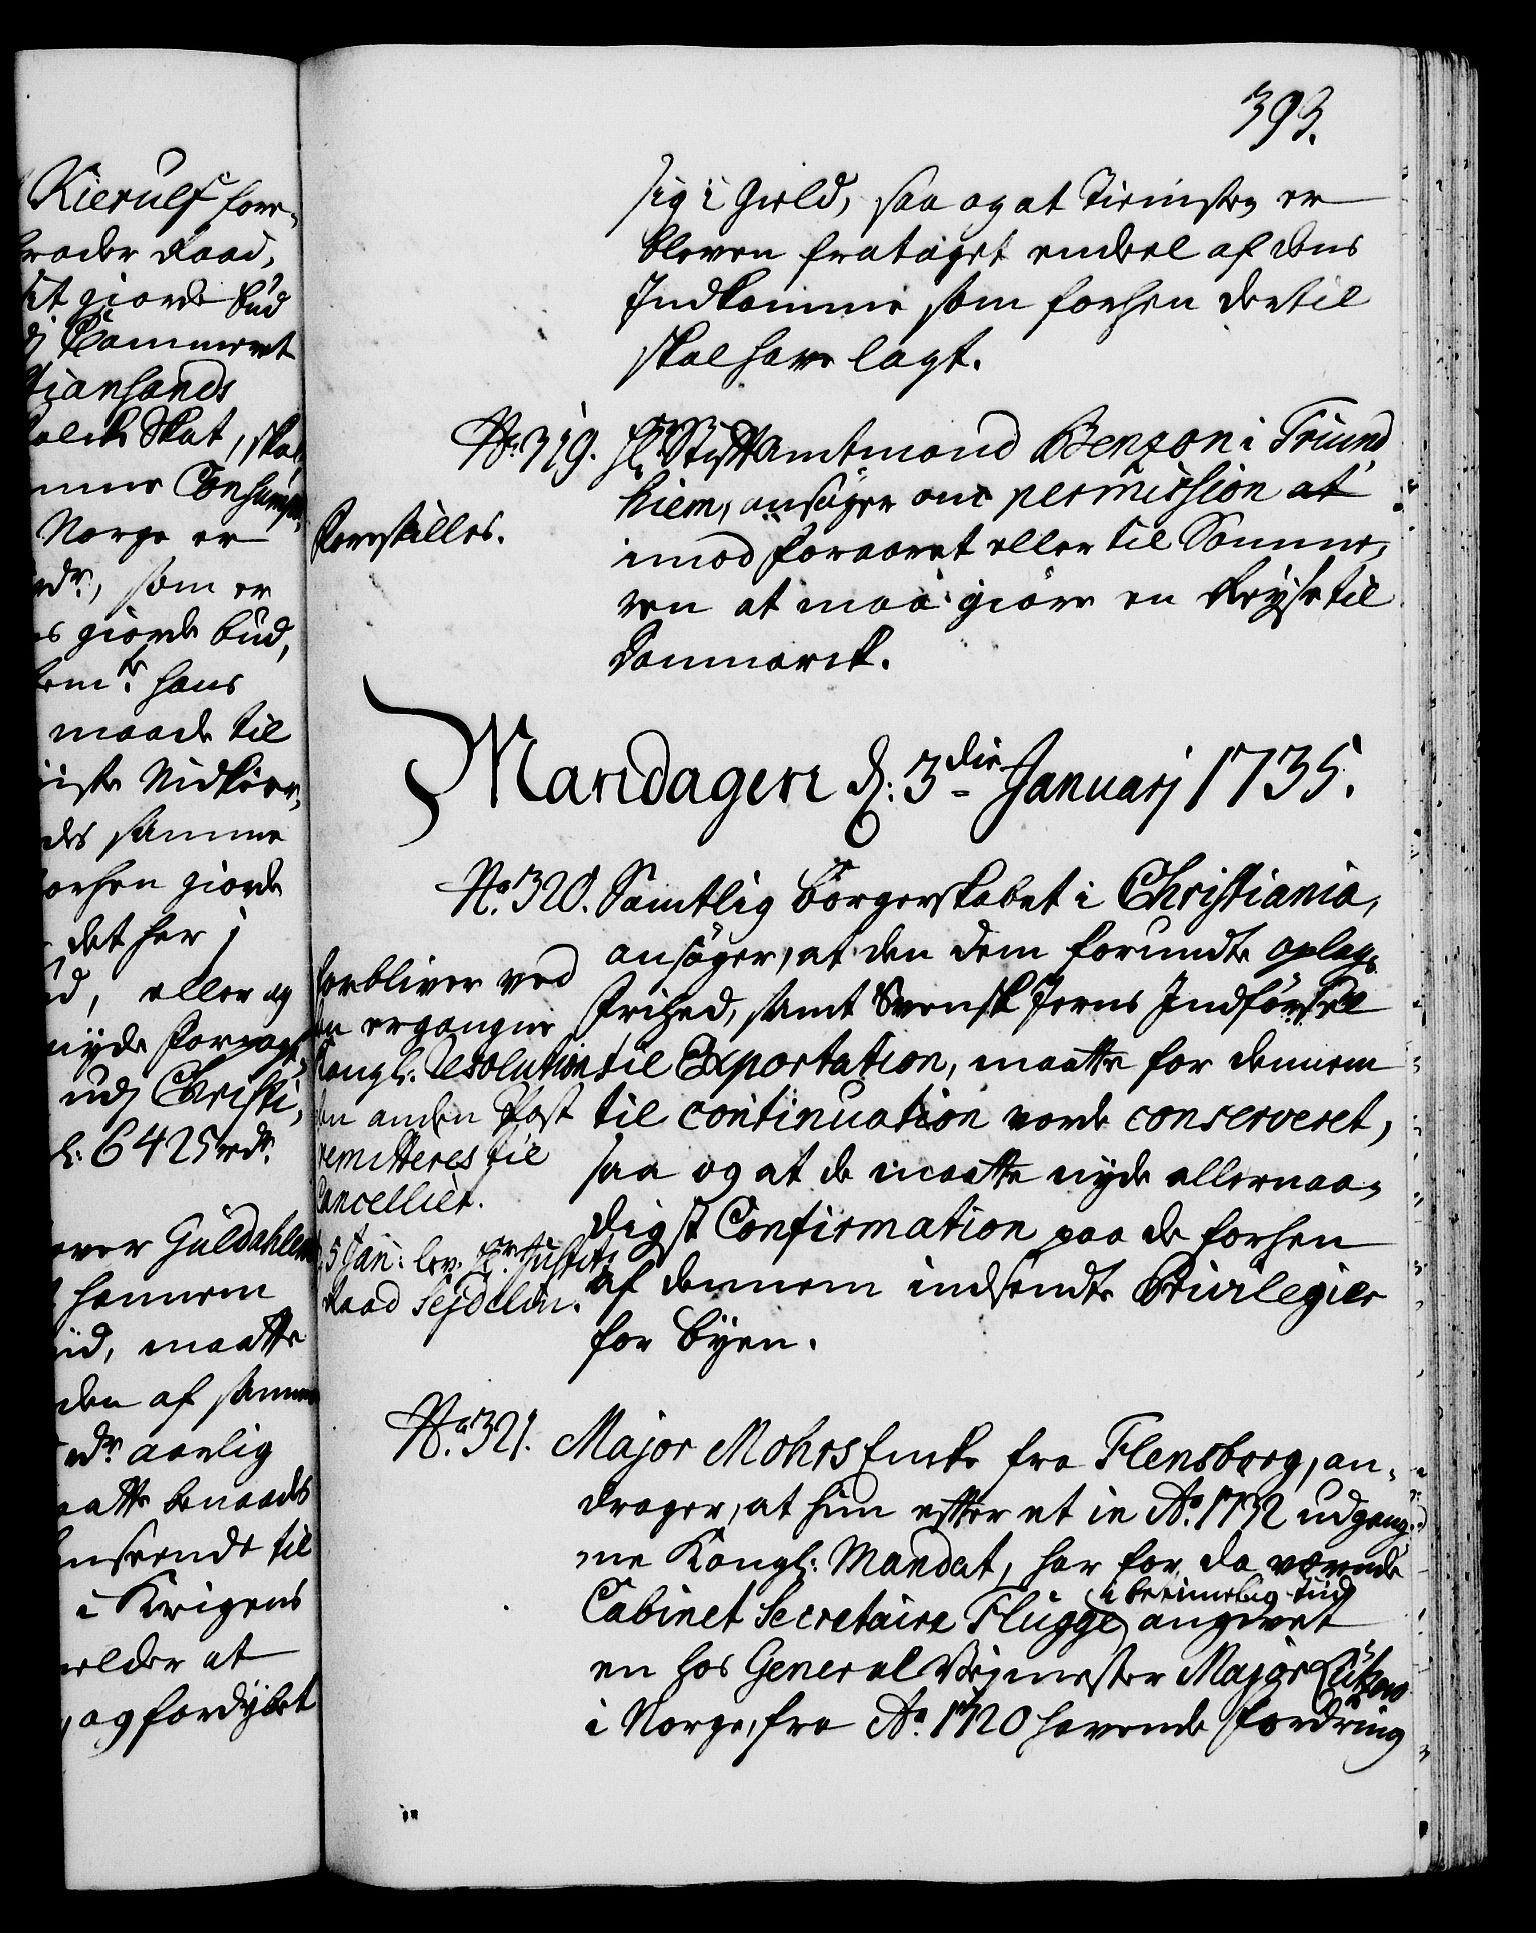 393.
sig i Gield, saa og at Tienisten er
bleven frataget endeel af dens
Indkomme som forhen dertil
skal have lagt.
No. 319. Hr. Stiftamtmand Benzon i Trund
hiem, ansøger om permission at
Forestilles.
imod Foraaret eller til Somme,
ren at maa giøre en Reyse til
Danmarck.
Mandagen d: 3die Januarj 1735.
No. 320. Samtlig Borgerskabet i Christiania,
ansøger, at den dem forundte oplags
Friehed, samt Svensk Jerns Indførsel
til Exportation, maatte for dennem
til continuation vorde conserveret,
saa og at de maatte nyde allernaa,
digst Confirmation paa de forhen
af dennem indsendte Privilegier
for Byen.
forbliver ved
en ergangne
Kongl: Resolution
en anden Post
remitteres til
Cancelliet.
5 Jan: lev. Hr. Justitz
Raad Sejdelin.
No. 321. Major Mohrs Encke fra Flensborg, an,
drager, at hun efter et in Ao. 1732 udgang,
ne Kongl: Mandat, har for da værende
Cabinet Secretaire Flügge i beqvemelig tiid angivet
en hos General Vejmester Major Lützow
i Norge, fra Ao. 1720 havende Fordring
Kierulf fore,
raader Raad,
it giorde Bud
Kammeret
tiansands
Skat, skal
Consumption
Norge er
rdr., som er
giorde Bud,
bemte. hans
maade til
iste Nidkier,
des samme
forhen giorde
det her i
d, eller og
nyde Forpagt
udj Christi,
6425 rdr.
over Guldahlen
hannem
iid, maatte
den af samme
rdr. aarlig
aatte benaades
Anseende til
i Krigens
melder at
, og fordybet